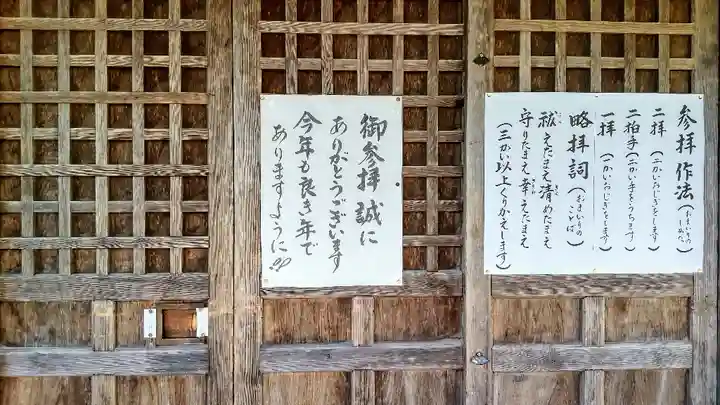 御参拝誠に
ありがとうございます
今年も良き年で
ありますように
参拝作法(おまいりのしかた)
二拝(二かいおじぎをします)
二拍手(二かい手をうちます)
一拝(一かいおじぎをします)
略拝詞(おまいりのことば)
祓えたまえ清めたまえ
守りたまえ幸えたまえ
(三かい以上くりかえします)